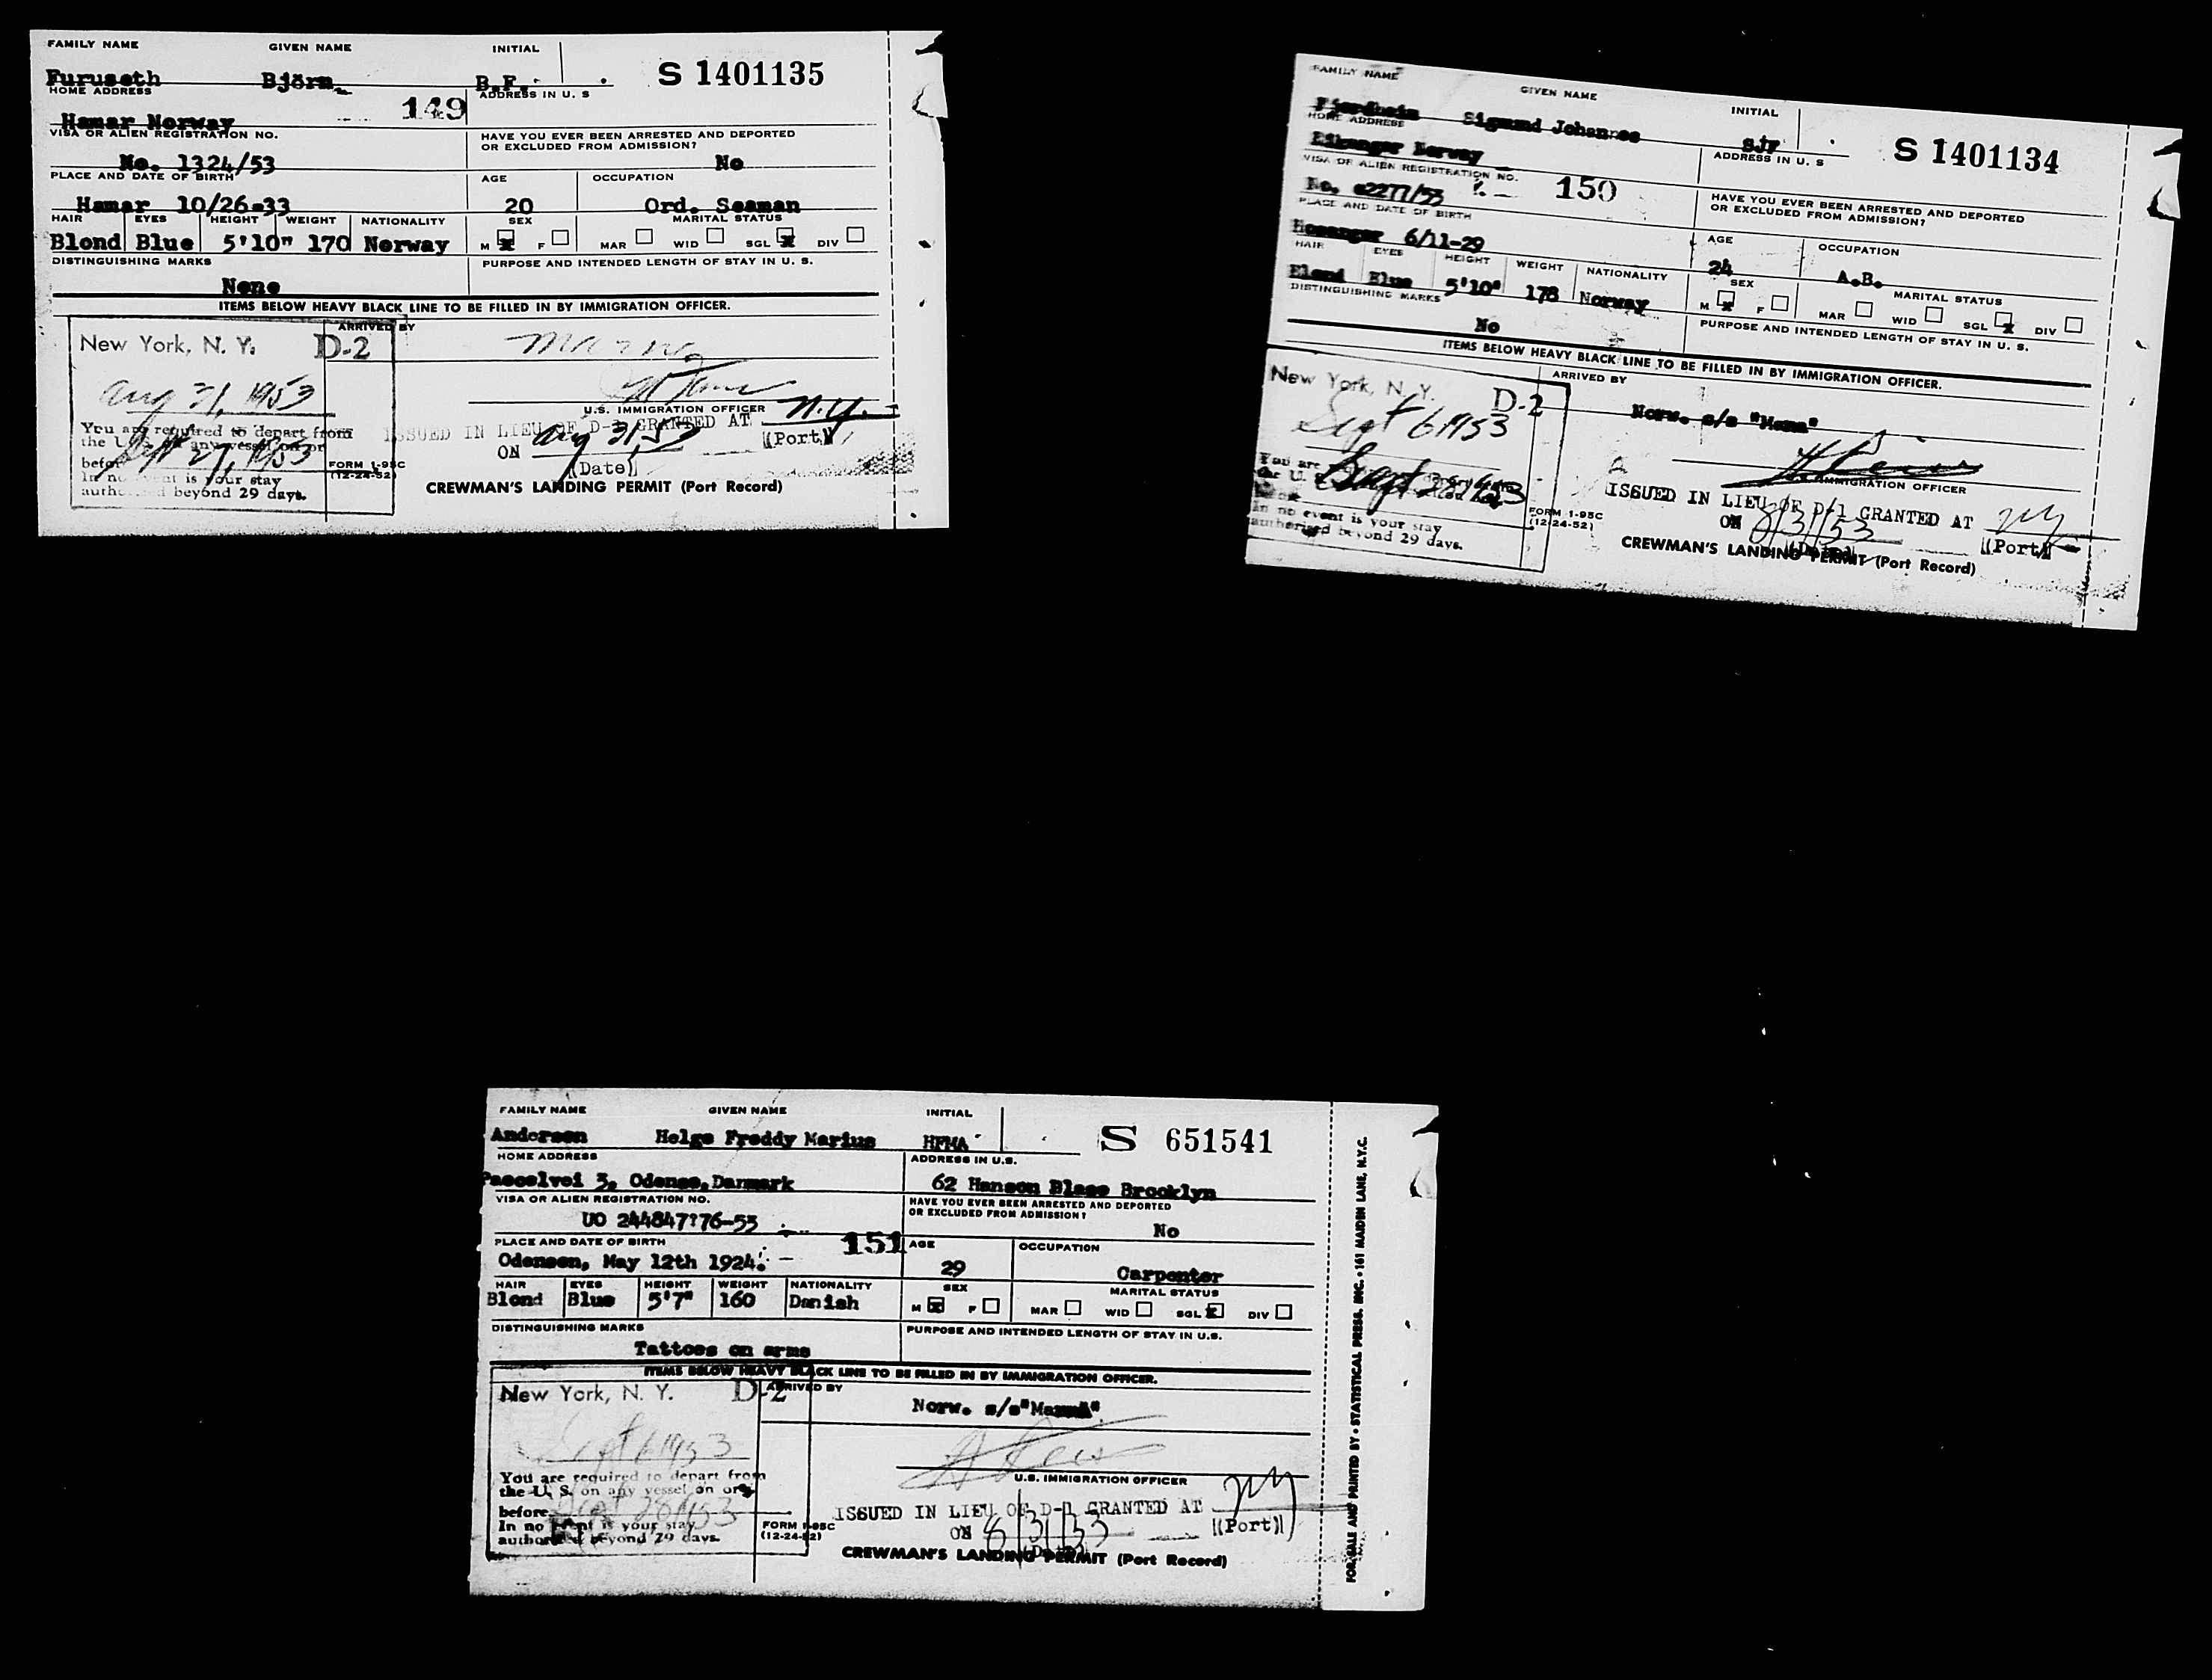 FAMILY NAME GIVEN NAME INITIAL
Furuseth Björn B.F. S 1401135
HOME ADDRESS ADDRESS IN U. S
Hamar Norway 149
VISA OR ALIEN REGISTRATION NO. HAVE YOU EVER BEEN ARRESTED AND DEPORTED OR EXCLUDED FROM ADMISSION?
No. 1324/53 No
PLACE AND DATE OF BIRTH AGE OCCUPATION
Hamar 10/26-33 20 Ord. Seaman
HAIR EYES HEIGHT WEIGHT NATIONALITY SEX MARITAL STATUS
Blond Blue 5'10" 170 Norway M X F MAR WID SGL X DIV
DISTINGUISHING MARKS PURPOSE AND INTENDED LENGTH OF STAY IN U. S.
None
ITEMS BELOW HEAVY BLACK LINE TO BE FILLED IN BY IMMIGRATION OFFICER.
ARRIVED BY
New York, N. Y. D-2
Aug 31, 1953
U.S. IMMIGRATION OFFICER
You are required to depart from
the U. S. on any vessel on or
before Sept 27, 1953
In no event is your stay
authorized beyond 29 days.
FORM I-95C
(12-24-52)
ISSUED IN LIEU OF D-1 GRANTED AT N.Y.
ON Aug 31, 53 (Port)
(Date)
CREWMAN'S LANDING PERMIT (Port Record)
FAMILY NAME GIVEN NAME INITIAL
Sigmund Johannes SJF S 1401134
HOME ADDRESS ADDRESS IN U. S
Eikanger Norway
VISA OR ALIEN REGISTRATION NO. HAVE YOU EVER BEEN ARRESTED AND DEPORTED OR EXCLUDED FROM ADMISSION?
No. 02277/53 150
PLACE AND DATE OF BIRTH AGE OCCUPATION
Hosanger 6/11-29 24 A.B.
HAIR EYES HEIGHT WEIGHT NATIONALITY SEX MARITAL STATUS
Blond Blue 5'10" 178 Norway M X F MAR WID SGL X DIV
DISTINGUISHING MARKS PURPOSE AND INTENDED LENGTH OF STAY IN U. S.
No
ITEMS BELOW HEAVY BLACK LINE TO BE FILLED IN BY IMMIGRATION OFFICER.
ARRIVED BY
New York, N. Y. D-2
Sept 6 1953
Norw. s/s
IMMIGRATION OFFICER
You are
the U. S.
Sept 28 1953
In no event is your stay
authorized beyond 29 days.
FORM I-95C
(12-24-52)
ISSUED IN LIEU OF D/1 GRANTED AT NY
ON 8/31/53 (Port)
CREWMAN'S LANDING PERMIT (Port Record)
FAMILY NAME GIVEN NAME INITIAL
Andersen Helge Freddy Marius HFMA S 651541
HOME ADDRESS ADDRESS IN U.S.
3, Odense, Danmark 62 Hanson Blace Brooklyn
VISA OR ALIEN REGISTRATION NO. HAVE YOU EVER BEEN ARRESTED AND DEPORTED OR EXCLUDED FROM ADMISSION?
UO 244847?76-53 No
PLACE AND DATE OF BIRTH 151 AGE OCCUPATION
Odensen, May 12th 1924. 29 Carpenter
HAIR EYES HEIGHT WEIGHT NATIONALITY SEX MARITAL STATUS
Blond Blue 5'7" 160 Danish M X F MAR WID SGL X DIV
DISTINGUISHING MARKS PURPOSE AND INTENDED LENGTH OF STAY IN U.S.
Tattoes on arms
ITEMS BELOW HEAVY BLACK LINE TO BE FILLED IN BY IMMIGRATION OFFICER.
New York, N. Y. D-2 ARRIVED BY
Norw. s/s
Sept 6 1953
U.S. IMMIGRATION OFFICER
You are required to depart from
the U. S. on any vessel on or
before Sept 28 1953
In no event is your stay
authorized beyond 29 days.
FORM I-95C
(12-24-52)
ISSUED IN LIEU OF D-1 GRANTED AT NY
ON 8/31/53 (Port)
CREWMAN'S LANDING PERMIT (Port Record)
FOR SALE AND PRINTED BY • STATISTICAL PRESS, INC. • 161 MAIDEN LANE, N.Y.C.